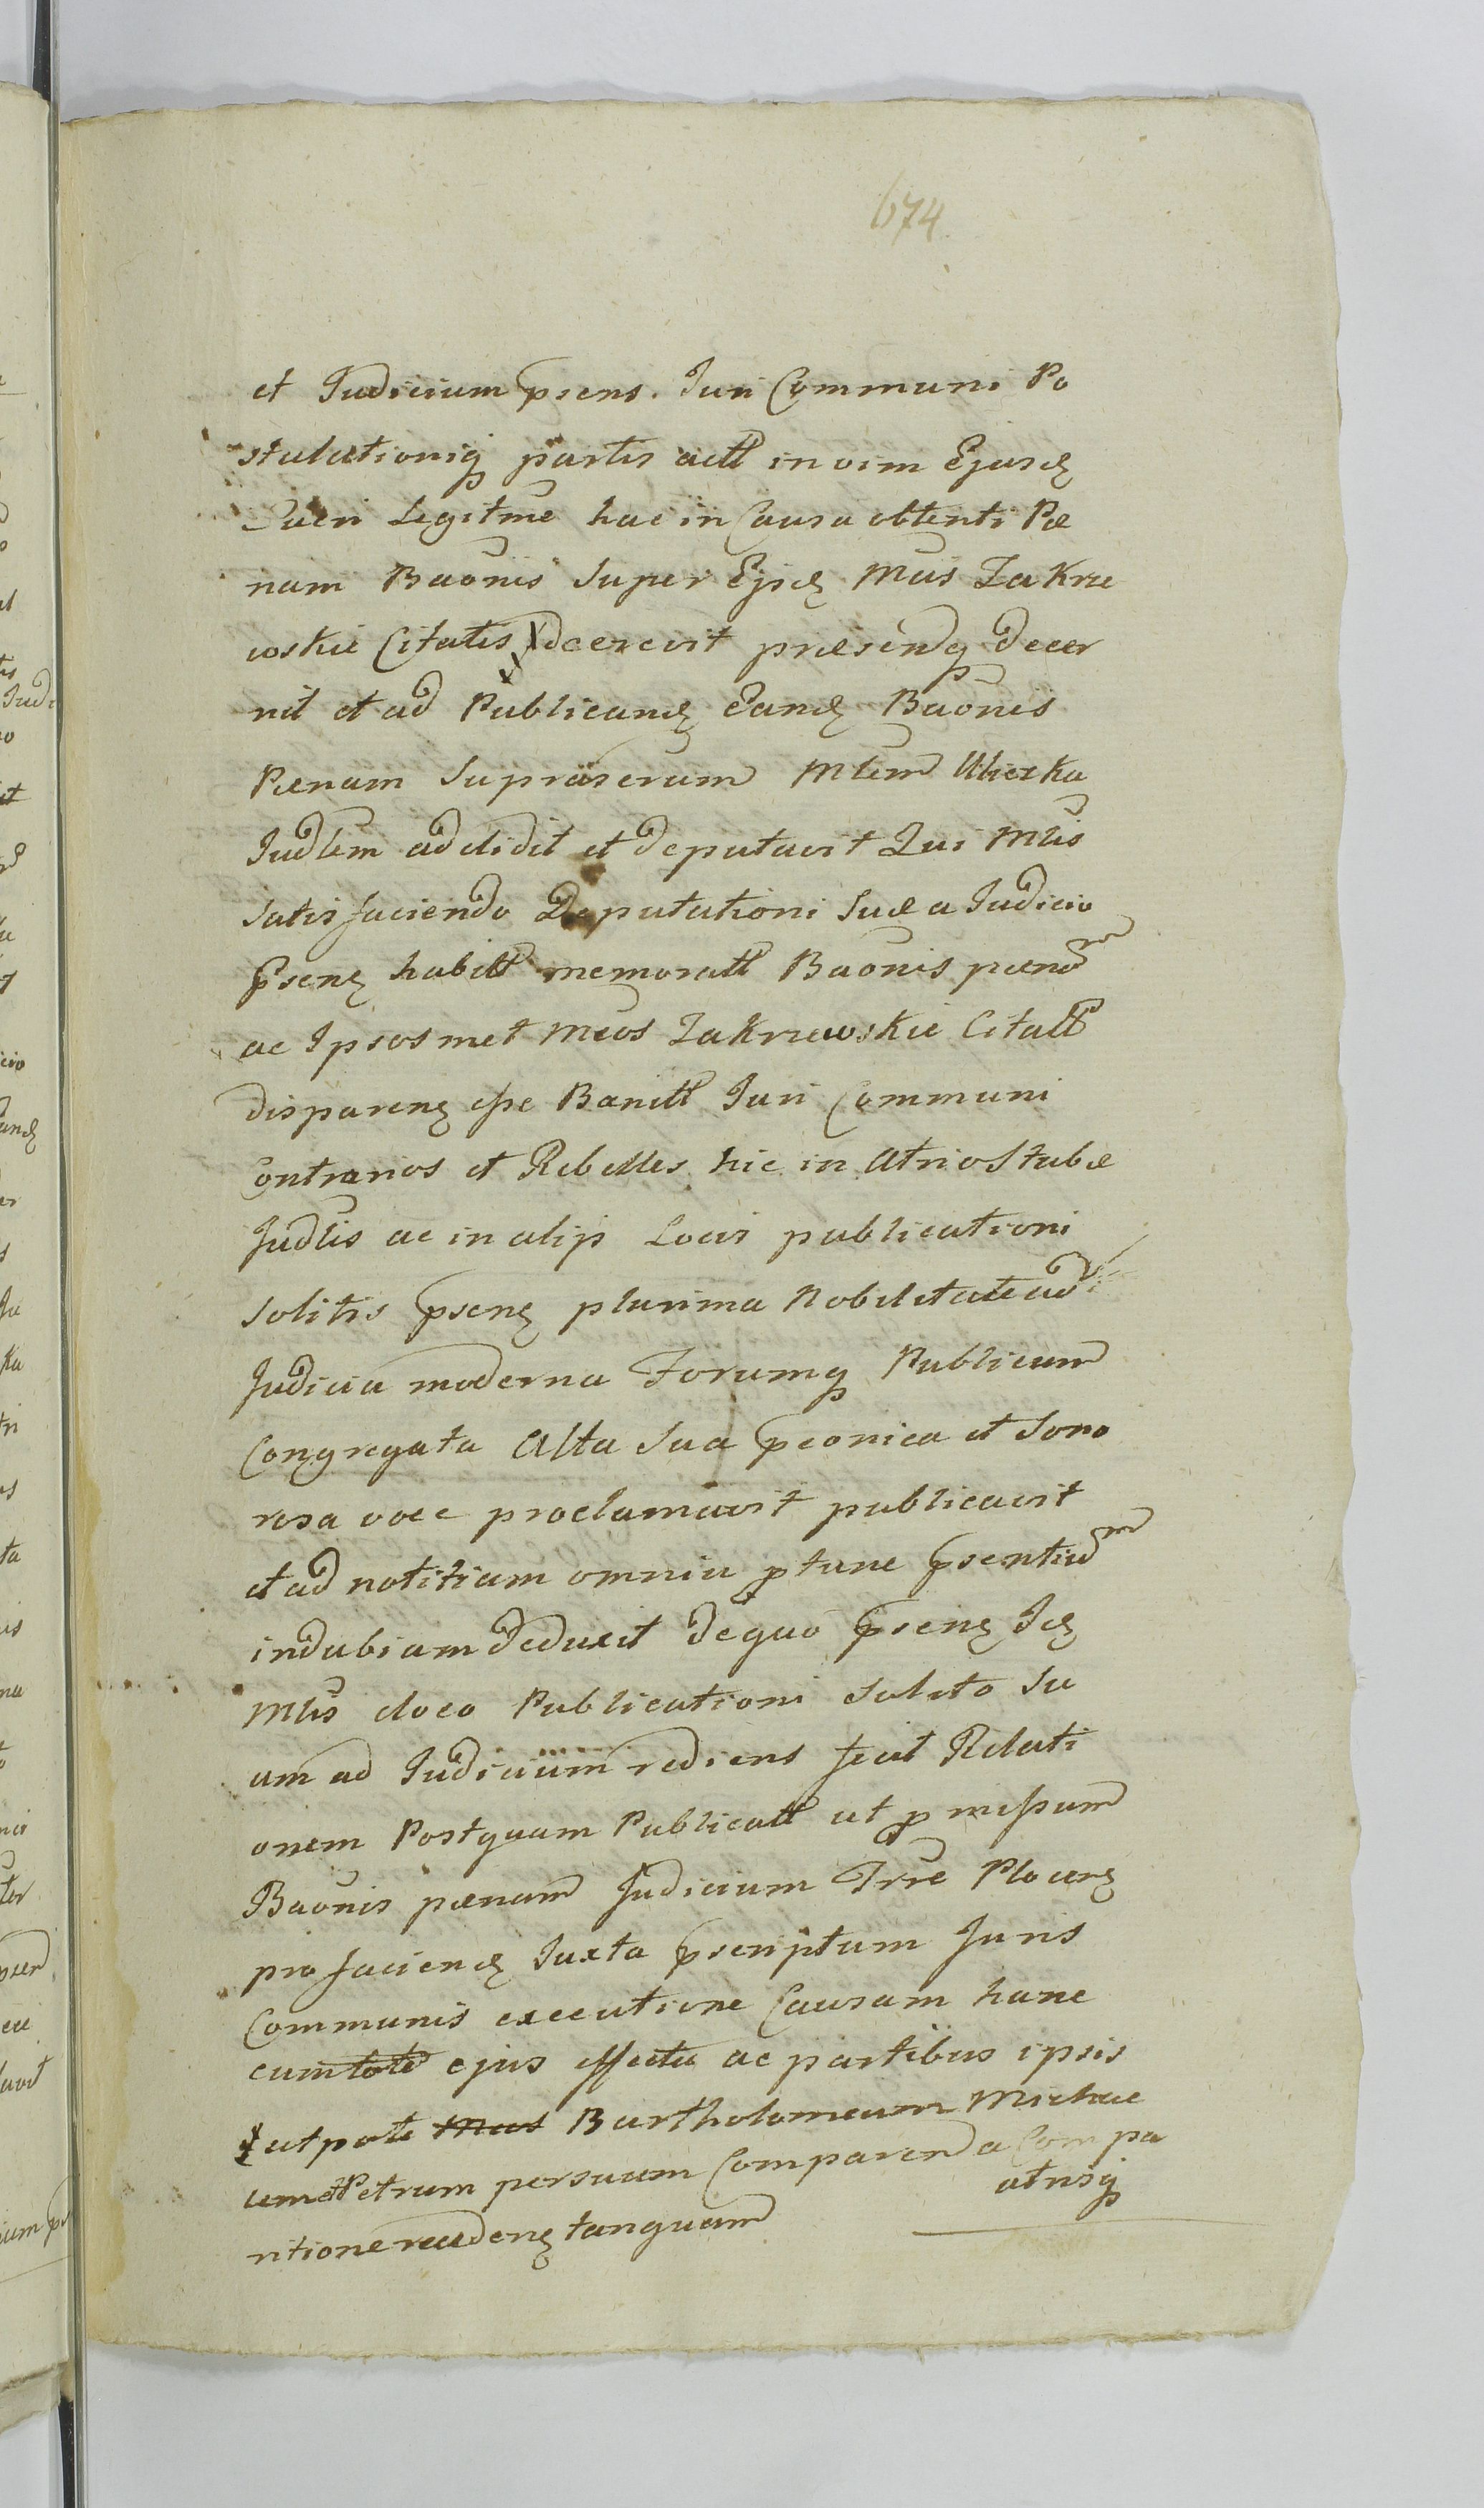 674
et Judicium prens. Juri Communi Po
stulationiq partis actt in vim Ejusd
Lucri Legitme hac in Causa obtenti Pæ
nam Baonis super Ejsd Mcis Zakrze
wskie Citatis decrevit præsentq decer
nit et ad Publicand Eand Baonis
Pænam Suprascrum Mlem Uliczka
Judlem addidit et deputavit Qui Mlis
satisfaciendo Deputationi suæ a Judicio
Psenq habitt memoratt Baonis pænam
ac Ipsosmet Mcos Zakrzewskie Citatt
disparenq esse Banitt Juri Communi
Contrarios et Rebelles hic in Atrio Stubæ
Judlis ac in alijs Locis publicationi
solitis psenq plurima Nobilitate ad
Judicia moderna Forumq Publicum
Congregata Alta Sua peonica et Sono
rosa voce proclamavit publicavit
et ad notitiam omniu ptunc psentium
indubiam deduxit de quo psenq Id
Mlis eloco Publicationi solito su
um ad Judicium rediens fecit Relati
onem Postquam Publicatt ut p missum
Baonis pænam Judicium Trre Plocens
pro faciend Juxta pscriptum Juris
Communis executione Causam hanc
cum toto ejus effectu ac partibus ipsis
utpote Mcos Bartholomeum Michae
lem et Petrum persuum Comparend a Compa
ritione recedenq tanquam
atnsq